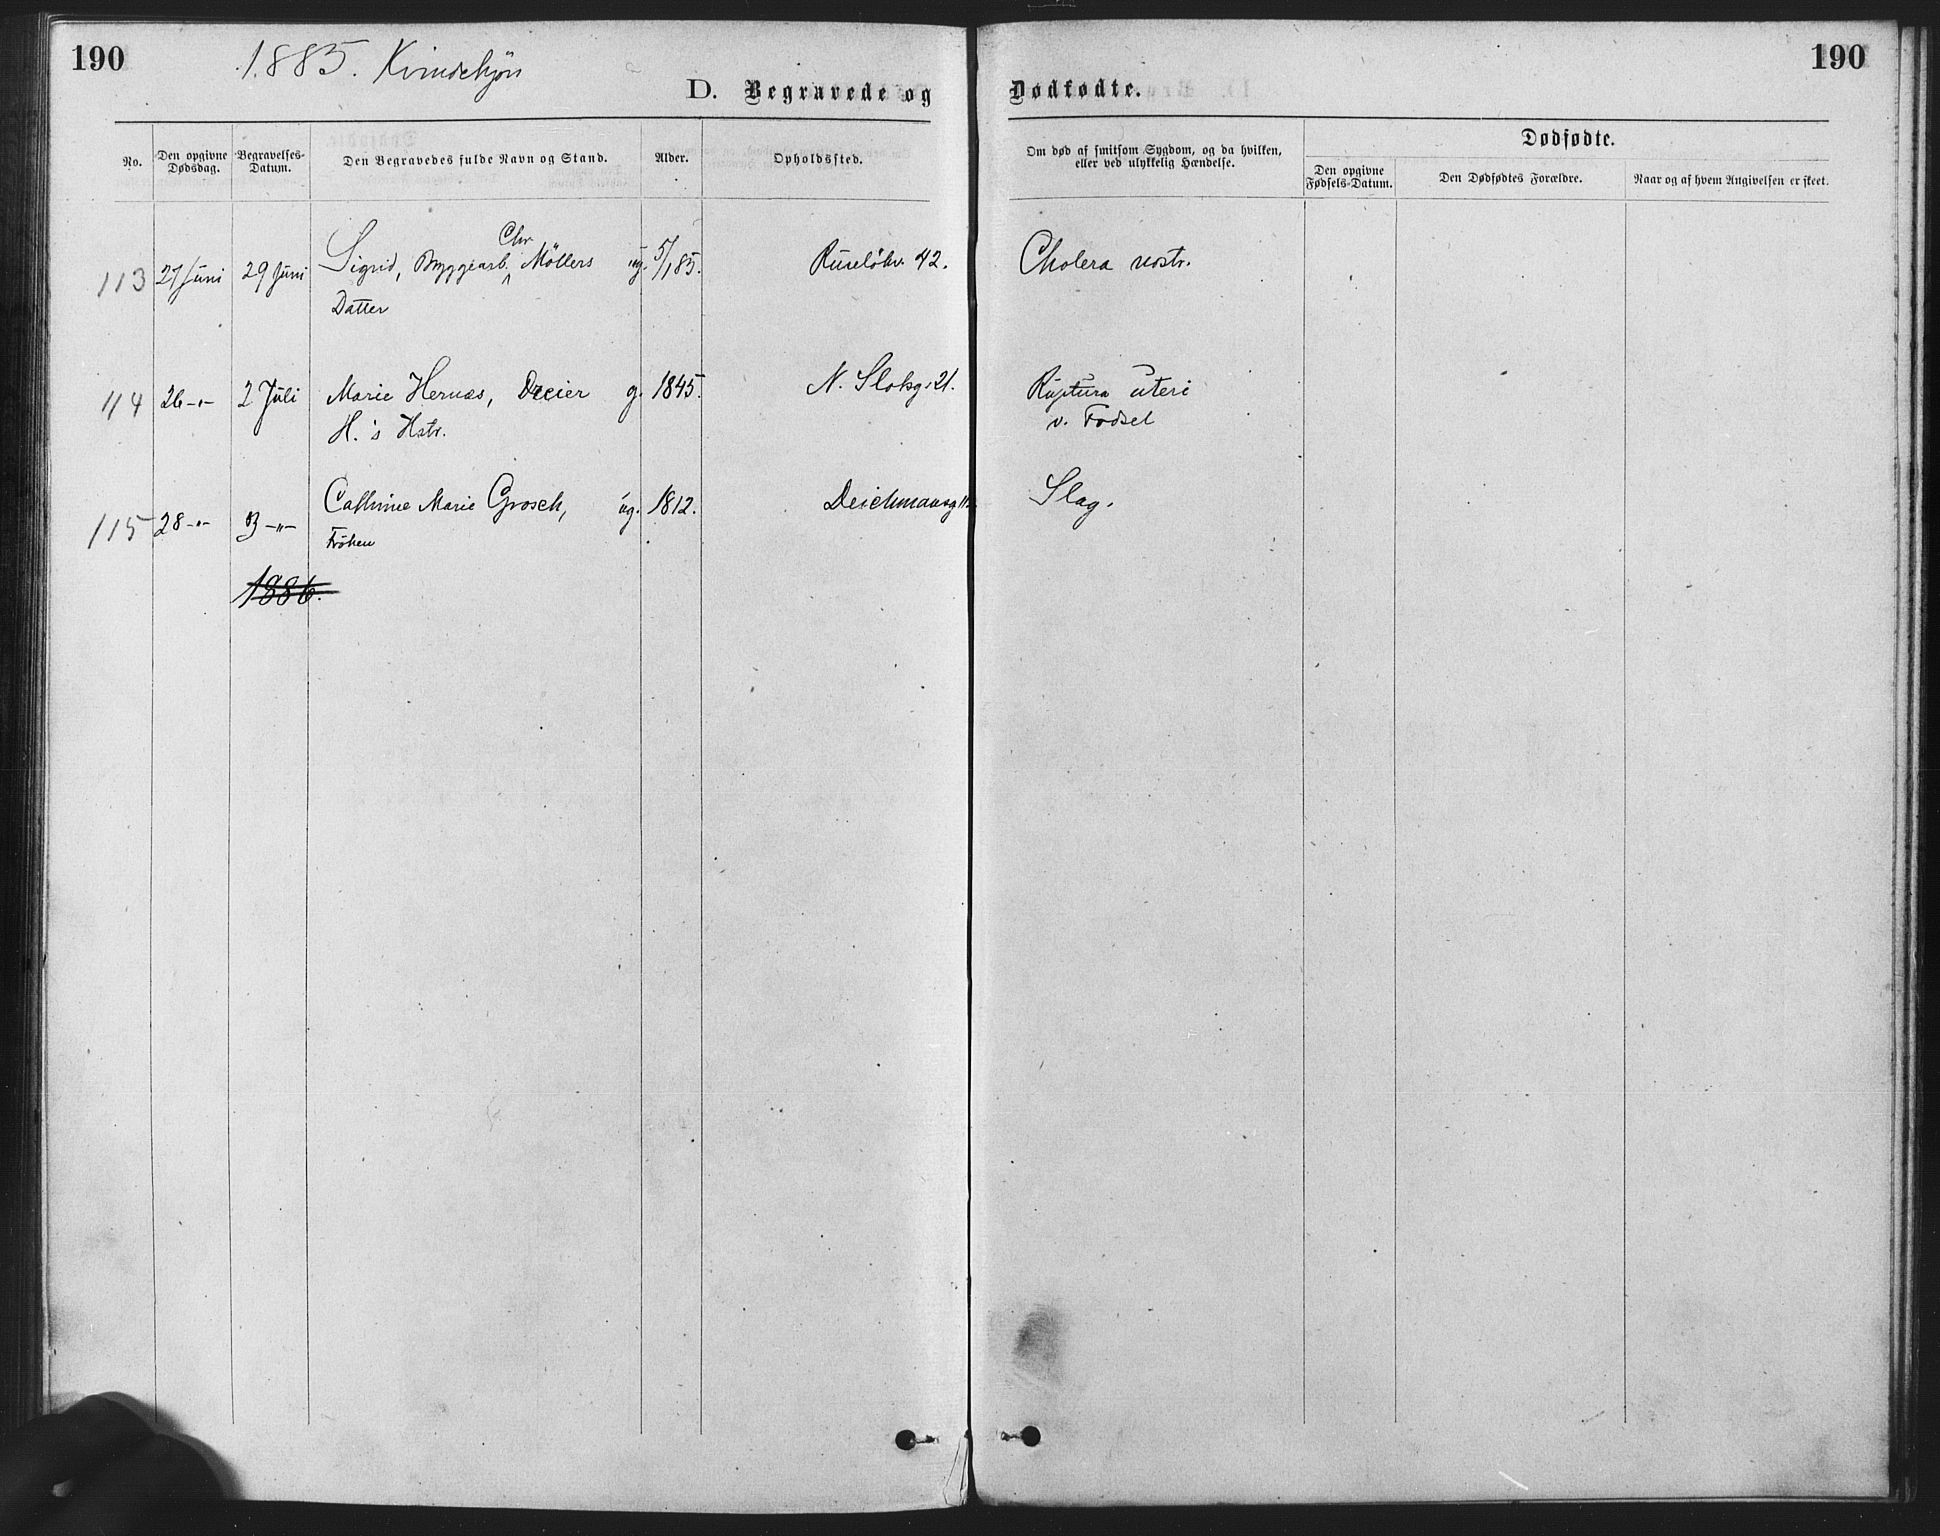 190
1885. Kvindekjøn
190
D. Begravede og Dødfødte.
No.
Den opgivne Dødsdag.
Begravelses-Datum.
Den Begravedes fulde Navn og Stand.
Alder.
Opholdssted.
Om død af smitsom Sygdom, og da hvilken, eller ved ulykkelig Hændelse.
Dødfødte.
Den opgivne Fødsels-Datum.
Den Dødfødtes Forældre.
Naar og af hvem Angivelsen er skeet.
Chr.
113 27 Juni 29 Juni Sigrid, Byggearb. Möllers ug. 5/1 85. Ruseløkv. 42. Cholera nostr.
Datter
114 26 -"- 2 Juli Marie Hernæs, Dreier g. 1845. N. Slotsg. 21. Ruptura uteri
H.'s Hstr. v. Fødsel
115 28 -"- 3 -"- Cathrine Marie Grosch, ug. 1812. Deichmansg 11 Slag.
Fröken
1886.